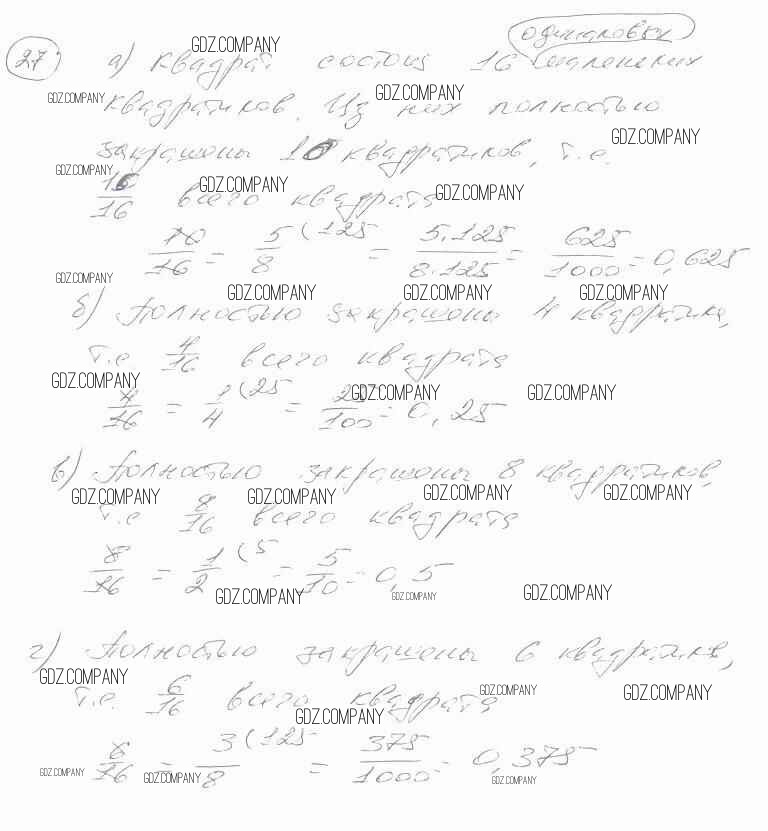 GDZ.COMPANY одинаковых
27 а) Квадрат состоит 16 маленьких
GDZ.COMPANY квадратиков. Из них GDZ.COMPANY полностью
закрашены 10 квадратиков, т.е. GDZ.COMPANY
GDZ.COMPANY
10/16 всего квадрата GDZ.COMPANY GDZ.COMPANY
10/16 = 5/8 (125 = 5·125/8·125 = 625/1000 = 0,625
GDZ.COMPANY GDZ.COMPANY GDZ.COMPANY GDZ.COMPANY
б) Полностью закрашены 4 квадратика,
т.е 4/16 всего квадрата
GDZ.COMPANY GDZ.COMPANY GDZ.COMPANY
4/16 = 1/4 (25 = 25/100 = 0,25
в) Полностью закрашены 8 квадратиков,
GDZ.COMPANY GDZ.COMPANY GDZ.COMPANY GDZ.COMPANY
т.е 8/16 всего квадрата
8/16 = 1/2 (5 = 5/10 = 0,5
GDZ.COMPANY GDZ.COMPANY GDZ.COMPANY
г) Полностью закрашены 6 квадратиков,
GDZ.COMPANY
т.е. 6/16 всего квадрата GDZ.COMPANY GDZ.COMPANY
GDZ.COMPANY
6/16 = 3/8 (125 = 375/1000 = 0,375
GDZ.COMPANY GDZ.COMPANY GDZ.COMPANY